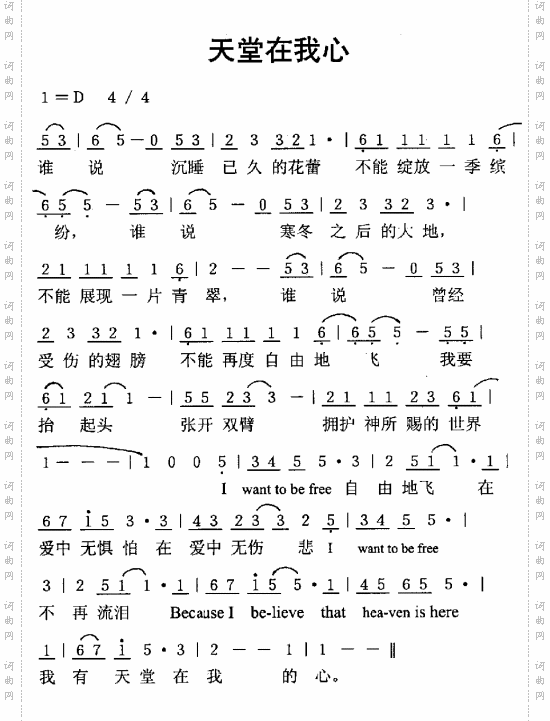 天堂在我心
1=D 4/4
53 | 6 5 — 0 53 | 2 3 321 · | 61 11 1 1 6 |
谁 说 沉睡 已 久 的花蕾 不能 绽放 一 季 缤
65 5 — 53 | 6 5 — 0 53 | 2 3 32 3 · |
纷, 谁 说 寒冬 之 后 的大 地,
21 11 1 1 6 | 2 — — 53 | 6 5 — 0 53 |
不能 展现 一 片 青 翠, 谁 说 曾经
2 3 32 1 · | 61 11 1 1 6 | 65 5 — 55 |
受 伤 的翅 膀 不能 再度 自 由 地 飞 我要
61 21 1 — | 55 23 3 — | 21 11 23 61 |
抬 起头 张开 双臂 拥护 神所 赐的 世界
1 — — — | 1 0 0 5 | 34 5 5 · 3 | 2 51 1 · 1 |
I want to be free 自 由 地飞 在
67 i5 3 · 3 | 43 23 3 2 5 | 34 5 5 · |
爱中 无惧 怕 在 爱中 无伤 悲 I want to be free
3 | 2 51 1 · 1 | 67 i5 5 · 1 | 45 65 5 · |
不 再 流泪 Because I be-lieve that hea-ven is here
1 | 67 i 5 · 3 | 2 — — 1 | 1 — — ‖
我 有 天 堂 在 我 的 心。
词曲网
词曲网
词曲网
词曲网
词曲网
词曲网
词曲网
词曲网
词曲网
词曲网
词曲网
词曲网
词曲网
词曲网